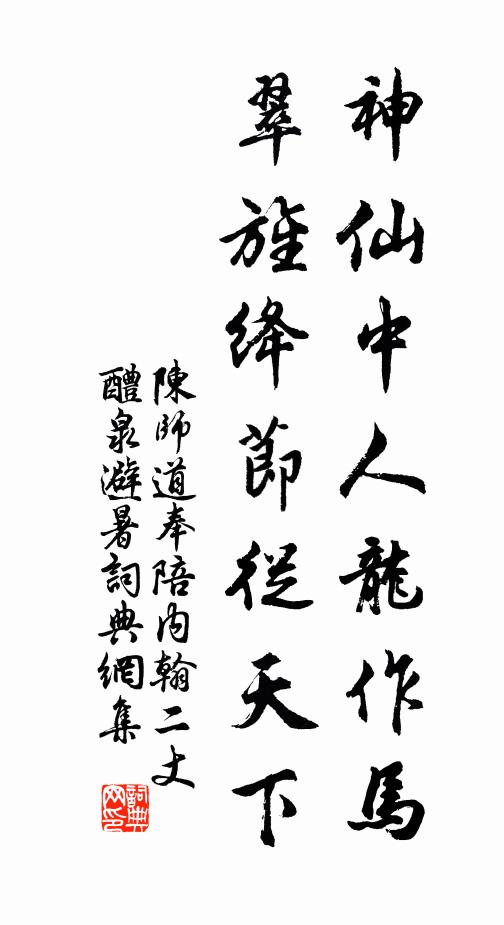 神仙中人龍作馬
翠旌絳節從天下
陳師道奉陪内翰二丈
醴泉避暑詞典網集
詞典
网印